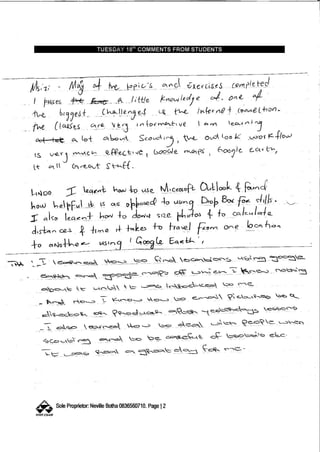 TUESDAY 18th COMMENTS FROM STUDENTS
Mszi - Many of the topics and Exercises completed
I passes. A little knowledge of one of
the biggest Challenges is the Internet connection.
The Classes are very informative I am learning
a lot about Scouting, the outlook workflow
is very much effective, Google maps, Google earth,
it all Great stuff.
Linso I learnt how to use Microsoft Outlook & found
how helpful it is as opposed to using Drop Box for clips.
I also learnt how to down size photos & to calculate
distances & time it takes to travel from one location
to another using Google Earth.
I learned how to find locations using google
earth and google maps of which I knew nothing
about it until it was introduced to me
And now I know how to email pictures
lessons
I also learned how to deal with people when
scouting and to be careful of
It was a great day for me.
Sole Proprietor: Neville Botha 0836560710. Page | 2